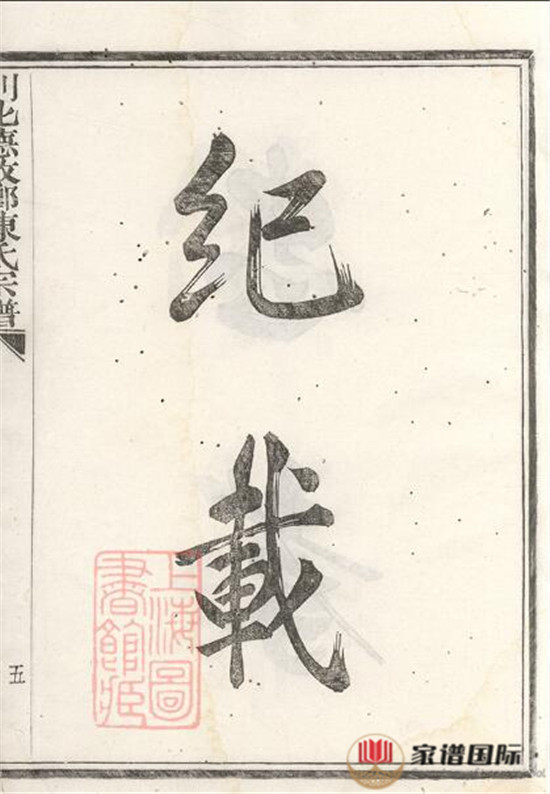 紀載
上海圖
書館藏
川北德政鄉陳氏宗譜
五
家谱国际